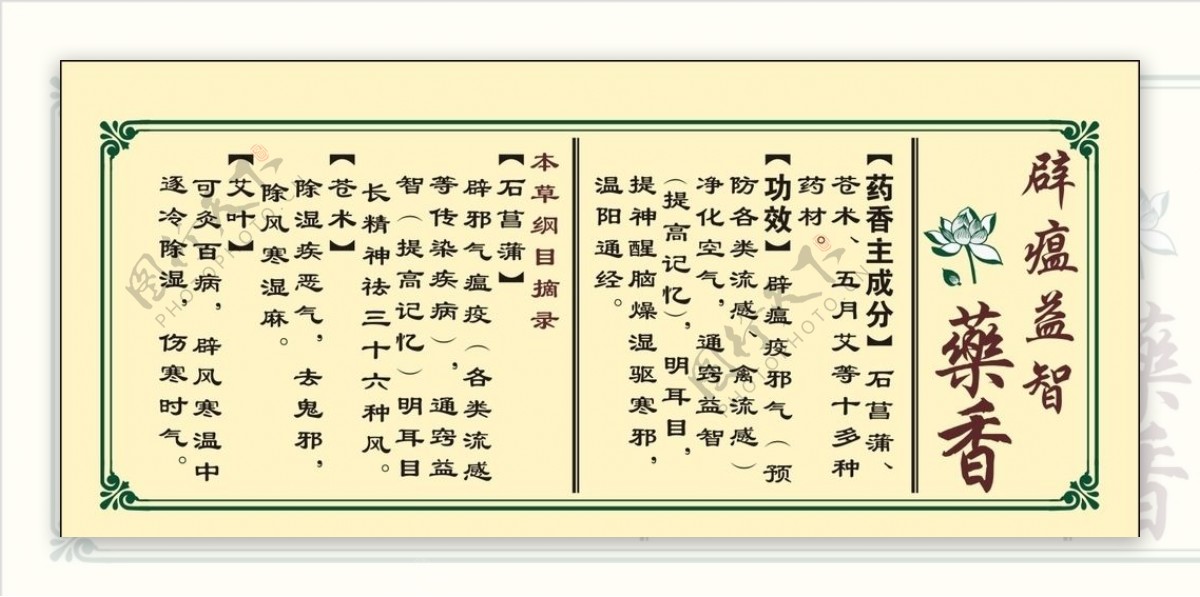 辟瘟益智
藥香
【药香主成分】石菖蒲、
苍术、五月艾等十多种
药材。
【功效】辟瘟疫邪气（预
防各类流感、禽流感）
净化空气，通窍益智
（提高记忆），明耳目，
提神醒脑燥湿驱寒邪，
温阳通经。
本草纲目摘录
【石菖蒲】
辟邪气瘟疫（各类流感
等传染疾病），通窍益
智（提高记忆）明耳目
长精神祛三十六种风。
【苍术】
除湿疾恶气，去鬼邪，
除风寒湿麻。
【艾叶】
可灸百病，辟风寒温中
逐冷除湿，伤寒时气。
图行天下
PHOTOPHOTO.CN
图行天下
PHOTOPHOTO.CN
藥香